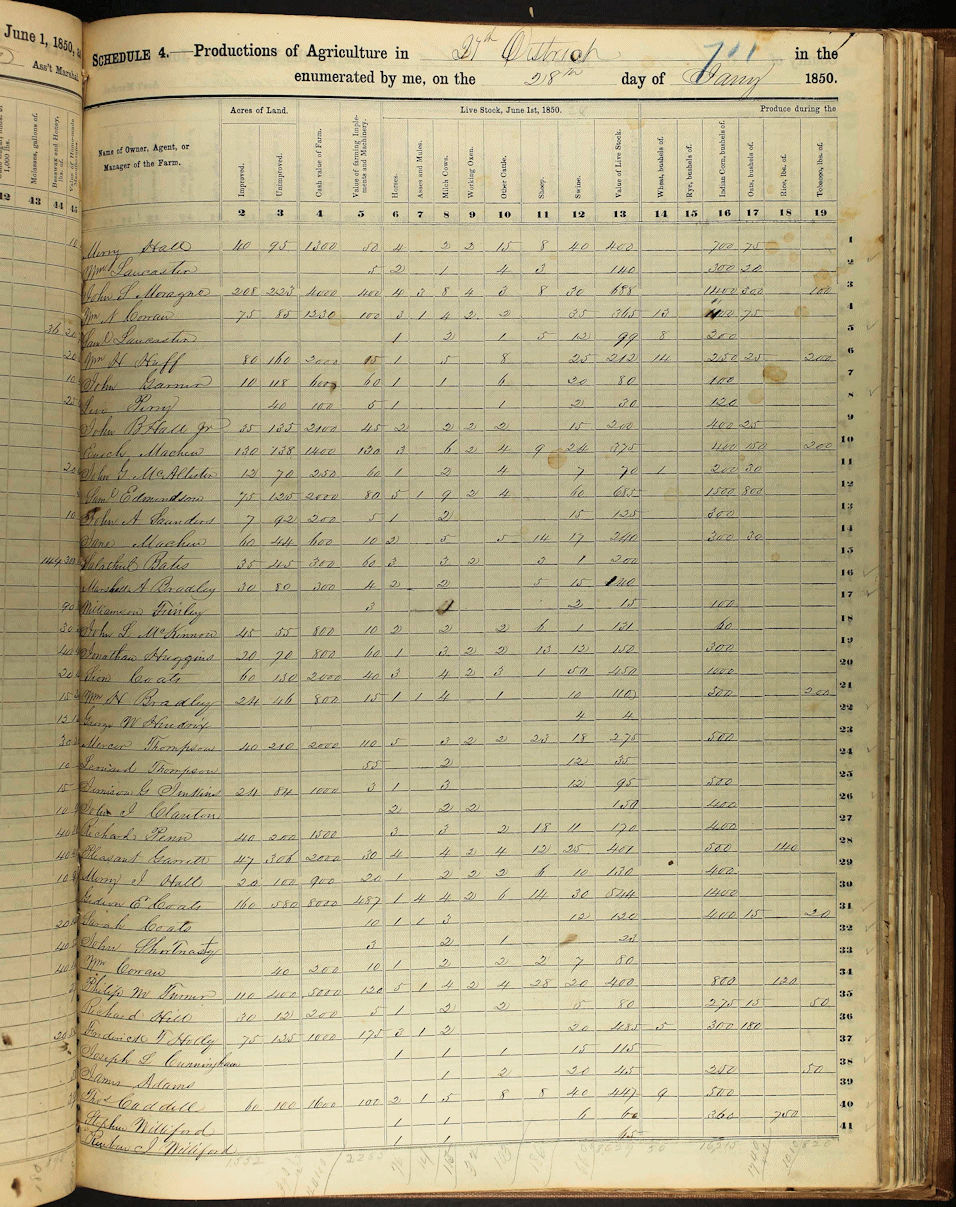 June 1, 1850, a
Ass't Marshal
SCHEDULE 4.—Productions of Agriculture in 27th District 701 in the
enumerated by me, on the 28th day of Jany 1850.
Acres of Land. Live Stock, June 1st, 1850. Produce during the
Molasses, gallons of. Beeswax and Honey, lbs. of. Name of Owner, Agent, or Manager of the Farm. Improved. Unimproved. Cash value of Farm. Value of farming Implements and Machinery. Horses. Asses and Mules. Milch Cows. Working Oxen. Other Cattle. Sheep. Swine. Value of Live Stock. Wheat, bushels of. Rye, bushels of. Indian Corn, bushels of. Oats, bushels of. Rice, lbs. of. Tobacco, lbs. of.
12 43 44 45 2 3 4 5 6 7 8 9 10 11 12 13 14 15 16 17 18 19
Merry Hall 95 1300 50 4 2 2 15 8 40 400 700 75 1
Wm Lancaster 5 2 1 4 3 140 300 20 2
John S Moragne 208 223 4000 400 4 3 8 4 3 8 30 688 1400 300 100 3
Wm N Cowan 75 85 1230 100 3 1 4 2 2 35 365 13 75 4
Saml Lancaster 1 2 1 5 12 99 8 200 5
Wm H Huff 80 160 2000 15 1 5 8 25 212 14 250 25 200 6
John Garner 10 118 600 60 1 1 6 20 80 100 7
Levi Perry 40 100 5 1 1 2 30 120 8
John B Hall Jr 35 135 2100 45 2 2 2 2 15 200 400 25 9
Enoch Machen 130 138 1400 120 3 6 2 4 9 24 375 400 150 200 10
John G McAlister 12 70 250 60 1 2 4 7 70 1 200 30 11
Saml Edmondson 75 125 2000 80 5 1 9 2 4 60 685 1500 800 12
John A Saunders 7 92 200 5 1 2 15 125 300 13
Jane Machen 60 44 600 10 2 5 5 14 17 240 300 30 14
Bates 35 45 300 60 3 3 2 2 1 200 15
Marshall A Bradley 30 80 300 4 2 2 5 15 140 16
Williamson Finley 3 2 15 100 17
John L McKinnon 45 55 800 10 2 2 2 6 1 131 60 18
Jonathan Huggins 20 70 800 60 1 3 2 2 13 12 150 300 19
Coats 60 130 2000 40 3 4 2 3 1 50 450 1000 20
Wm H Bradley 24 46 800 15 1 1 4 1 10 110 300 200 21
George W Hendrix 4 4 22
Mercer Thompson 40 210 2000 110 5 3 2 2 23 18 275 500 23
Thompson 55 2 12 35 24
Jamison G Jenkins 24 84 1000 3 1 3 12 95 500 25
John J Clariton 2 2 2 150 400 26
Richard Penn 40 200 1500 3 3 2 18 11 170 400 27
Pleasant Garrett 47 306 2000 30 4 4 2 4 12 25 401 500 140 28
Merry J Hall 20 100 900 20 1 2 2 2 6 10 130 400 29
Gideon E Coats 160 580 8000 487 1 4 4 2 6 14 30 544 1400 30
Sarah Coats 10 1 1 3 12 120 400 15 20 31
John Shortnasty 3 2 1 23 32
Wm Cowan 40 200 10 1 2 2 2 7 80 33
Philip W Turner 110 400 5000 120 5 1 4 2 4 28 20 400 800 120 34
Richard Hill 30 12 200 5 1 2 2 80 275 15 50 35
Frederick F Holly 75 125 1000 175 3 1 2 20 485 5 300 180 36
Joseph L Cunningham 1 1 1 15 115 37
James Adams 1 2 20 45 250 50 38
Thos Caddell 60 100 1600 100 2 1 5 8 8 40 447 9 500 39
Stephen Williford 1 1 6 60 360 750 40
Reuben J Williford 1 1 65 41
1552 2255 50